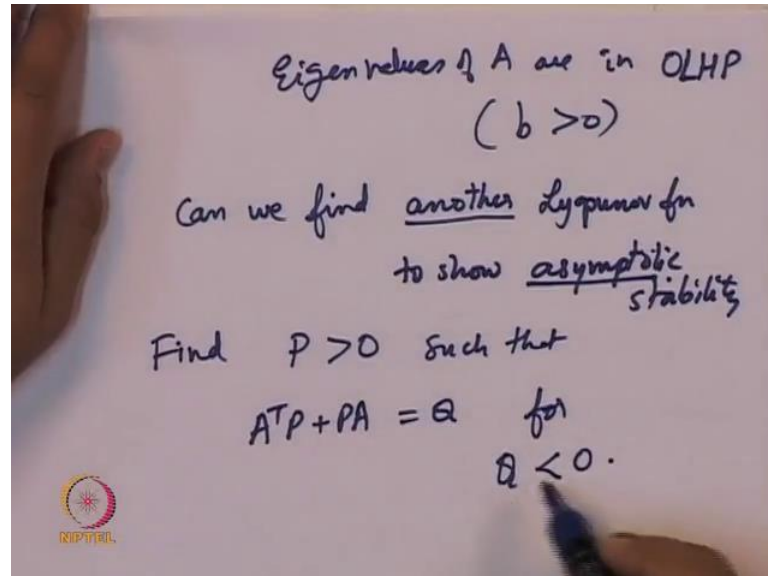 Eigenvalues of A are in OLHP
(b >0)
Can we find another Lyapunov fn
to show asymptotic
stability
Find P >0 such that
AᵀP + PA = Q for
Q < 0.
NPTEL